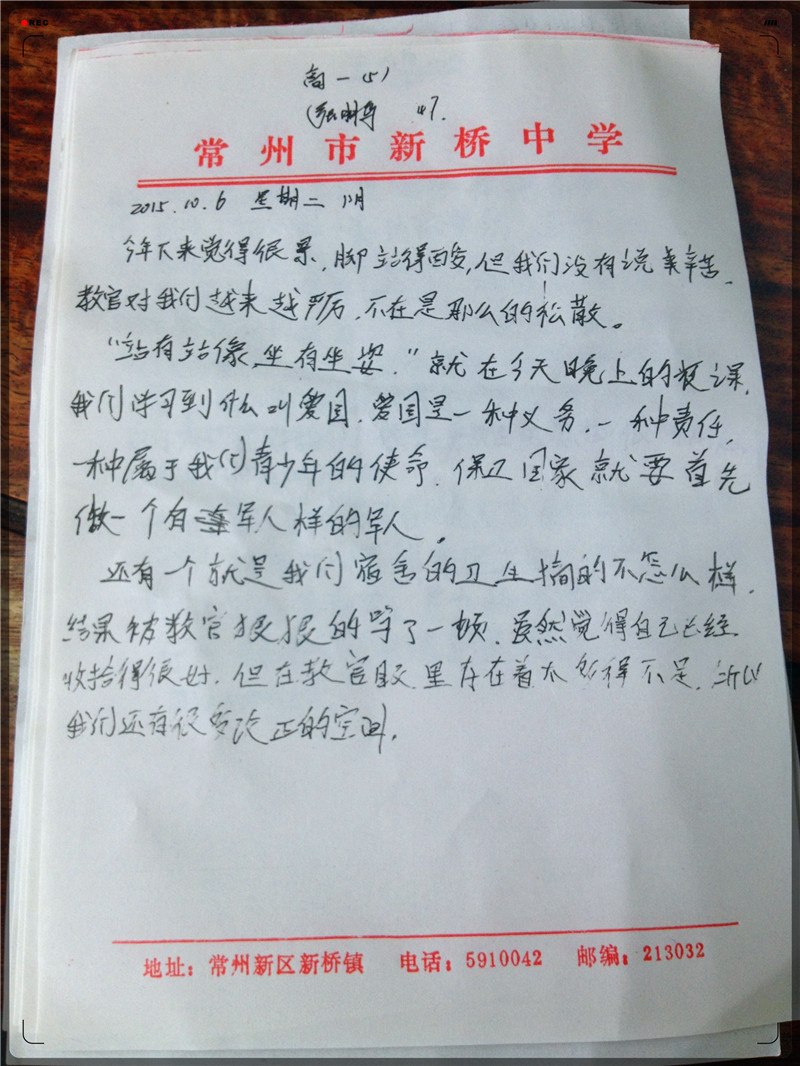 REC
高一(5)
47.
常州市新桥中学
2015.10.6 星期二 晴
今年下来觉得很累，脚站得酸，但我们没有说美辛苦、
教官对我们越来越严厉，不在是那么的松散。
“站有站像，坐有坐姿，”就在今天晚上的授课，
我们学习到什么叫爱国，爱国是一种义务，一种责任，
一种属于我们青少年的使命，保卫国家就要首先
做一个有军人样的军人。
还有一个就是我们宿舍的卫生搞的不怎么样，
结果被教官狠狠的骂了一顿，虽然觉得自己已经
收拾得很好，但在教官眼里存在着太多得不足，所以
我们还有很多改正的空间。
地址：常州新区新桥镇 电话：5910042 邮编：213032